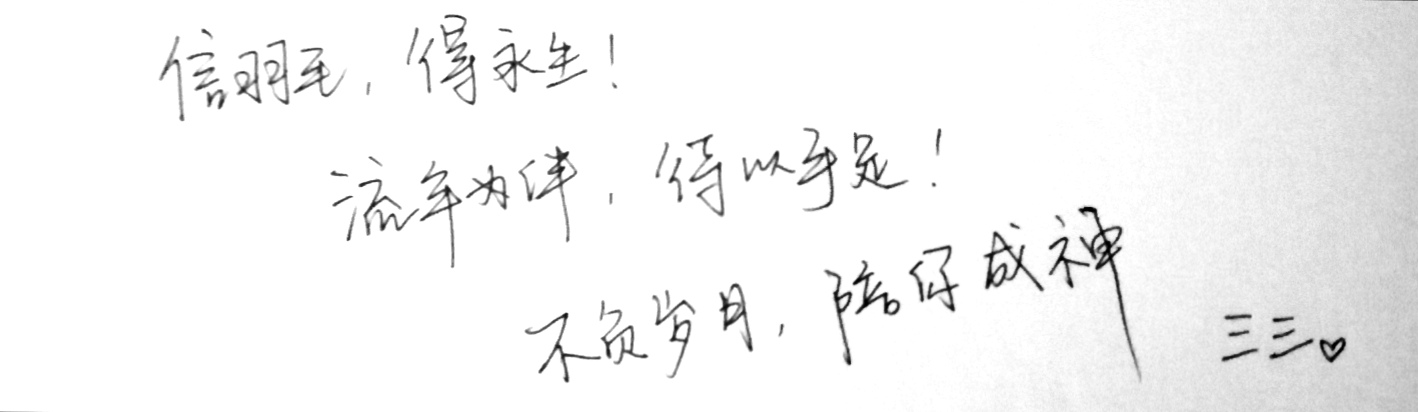 信羽毛，得永生！
流年为伴，待以手足！
不负岁月，陪仔成神
三三♡